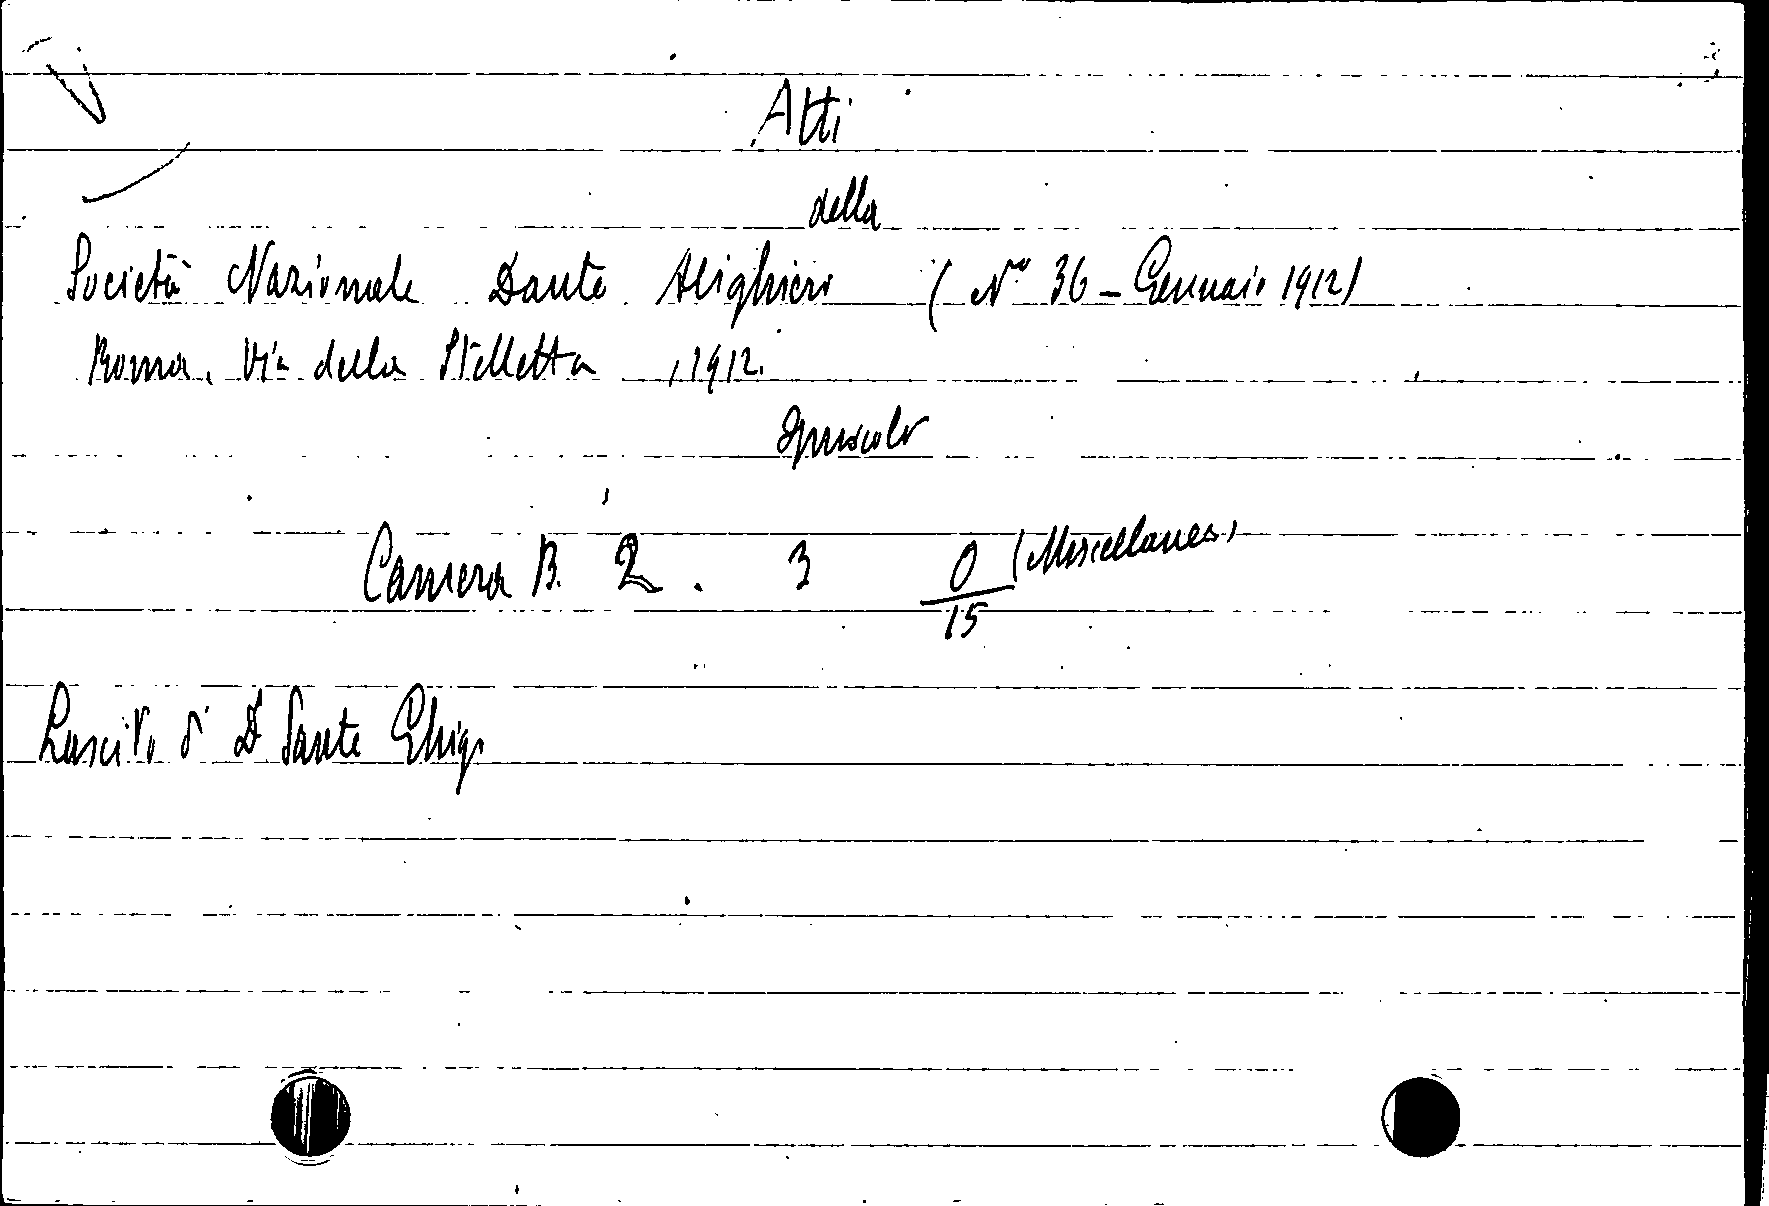 Atti
della
Società Nazionale Dante Alighieri (N° 36 - Gennaio 1912)
Roma, Via della Stelletta, 1912.
Opuscolo
Camera B. 2. 3 0/15 (Miscellanea)
Lascito di D Sante